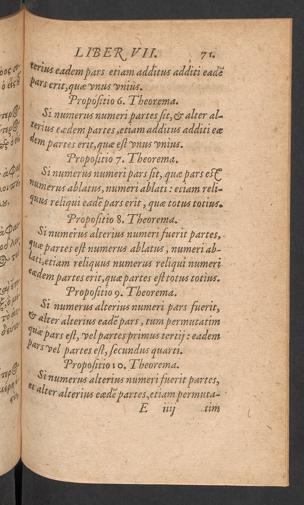 LIBER VII. 71.
terius eadem pars etiam additus additi eadē
pars erit, quæ vnus vnius.
Propositio 6. Theorema.
Si numerus numeri partes sit, & alter al-
terius eædem partes, etiam additus additi eæ
dem partes erit, quæ est vnus vnius.
Propositio 7. Theorema.
Si numerus numeri pars sit, quæ pars est
numerus ablatus, numeri ablati: etiam reli-
quus reliqui eadē pars erit, quæ totus totius.
Propositio 8. Theorema.
Si numerus alterius numeri fuerit partes,
quæ partes est numerus ablatus, numeri ab-
lati, etiam reliquus numerus reliqui numeri
eædem partes erit, quæ partes est totus totius.
Propositio 9. Theorema.
Si numerus alterius numeri pars fuerit,
& alter alterius eadē pars, tum permutatim
quæ pars est, vel partes primus tertij: eadem
pars vel partes est, secundus quarti.
Propositio 10. Theorema.
Si numerus alterius numeri fuerit partes,
et alter alterius eædē partes, etiam permuta-
E iiij tim